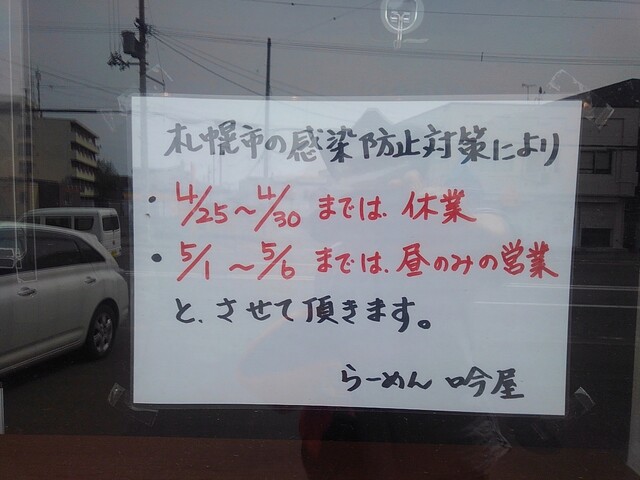 札幌市の感染防止対策により
・4/25～4/30 までは、休業
・5/1～5/6 までは、昼のみの営業
と、させて頂きます。
らーめん 吟屋